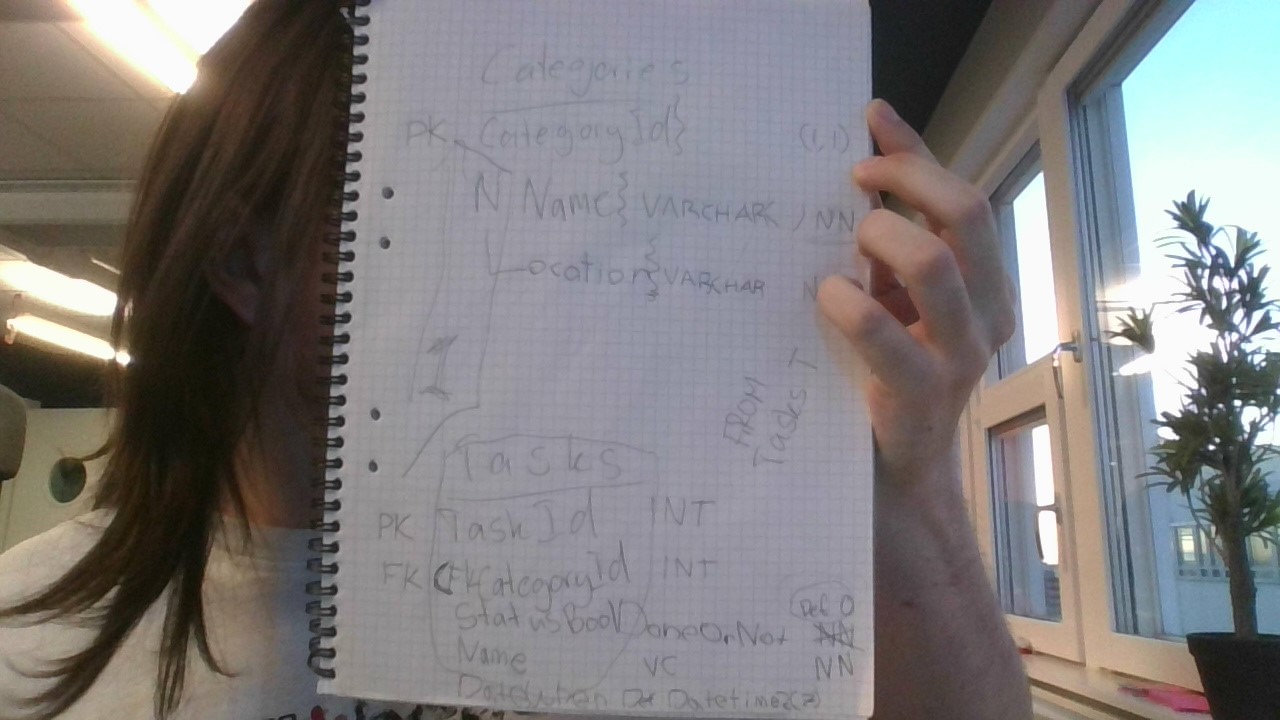 Categories
PK CategoryId} (1,1)
N Name} VARCHAR , NN
Location} VARCHAR N
1
FROM
Tasks T
Tasks
PK TaskId INT
FK (FKCategoryId INT
Def 0
StatusBool DoneOrNot NN
Name VC NN
Datetime2(7)